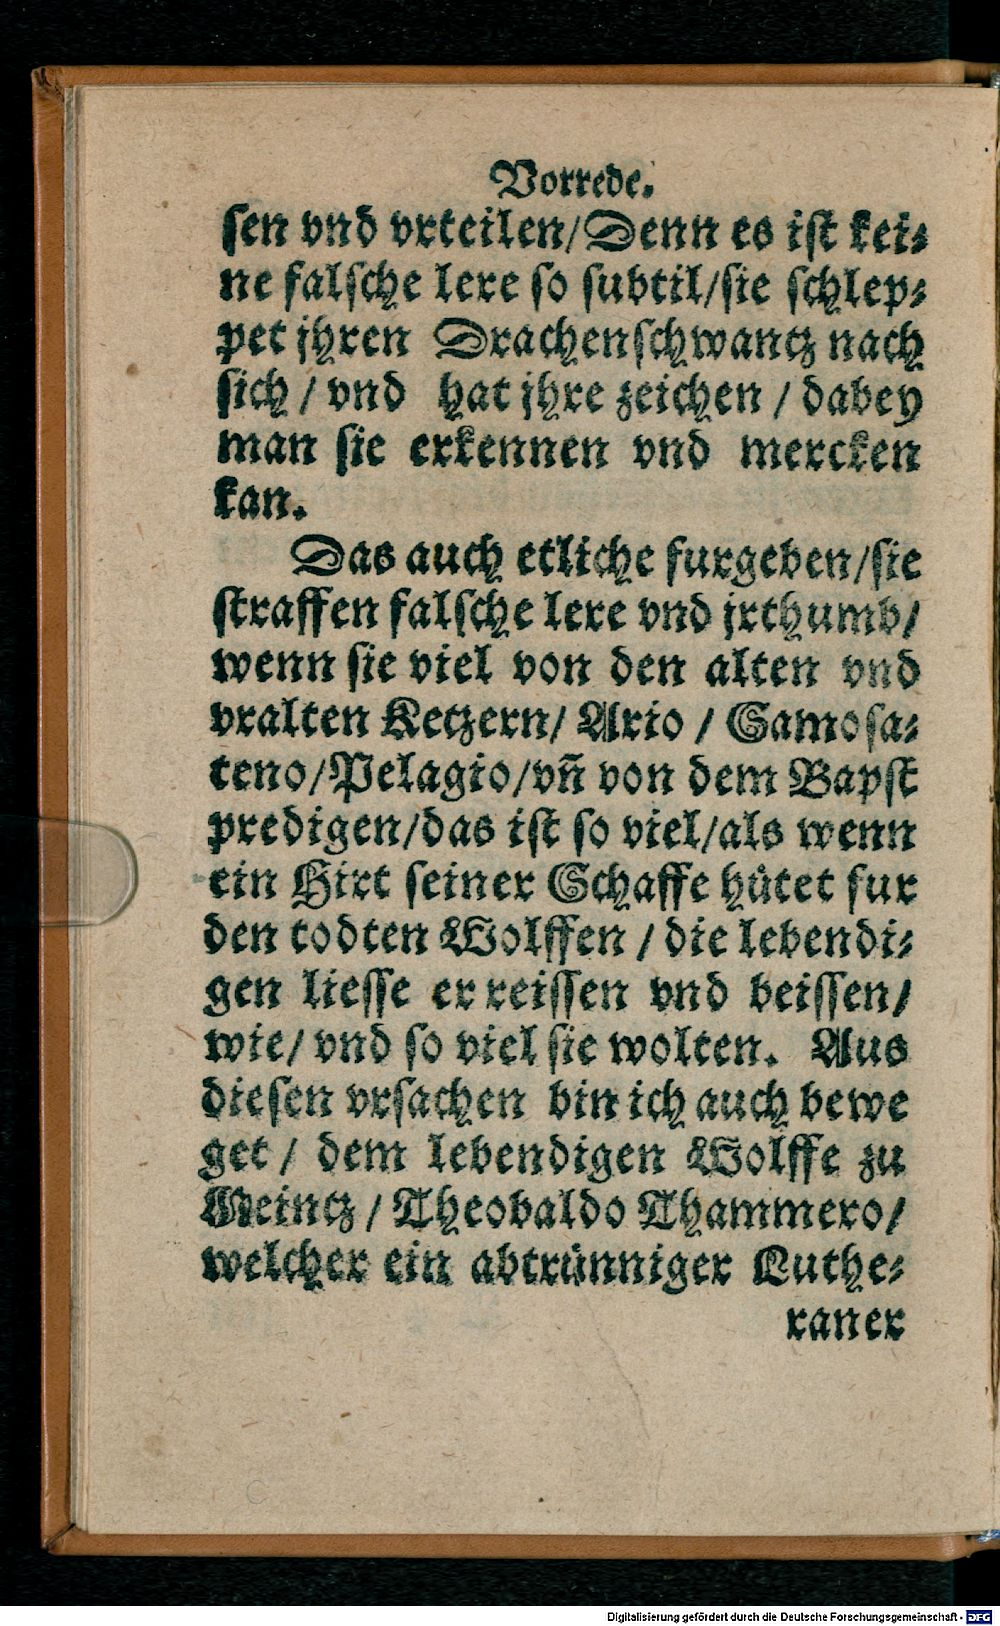 Vorrede.
sen vnd vrteilen/Denn es ist kei⸗
ne falsche lere so subtil/sie schlep⸗
pet jhren Drachenschwantz nach
sich / vnd hat jhre zeichen / dabey
man sie erkennen vnd mercken
kan.
Das auch etliche furgeben/sie
straffen falsche lere vnd jrthumb/
wenn sie viel von den alten vnd
vralten Ketzern/ Ario / Samosa⸗
teno/Pelagio/vn̄ von dem Bapst
predigen/das ist so viel/als wenn
ein Hirt seiner Schaffe hütet fur
den todten Wolffen / die lebendi⸗
gen liesse er reissen vnd beissen/
wie/ vnd so viel sie wolten. Aus
diesen vrsachen bin ich auch bewe
get / dem lebendigen Wolffe zu
Meintz / Theobaldo Thammero/
welcher ein abtrünniger Luthe⸗
raner
Digitalisierung gefördert durch die Deutsche Forschungsgemeinschaft - DFG